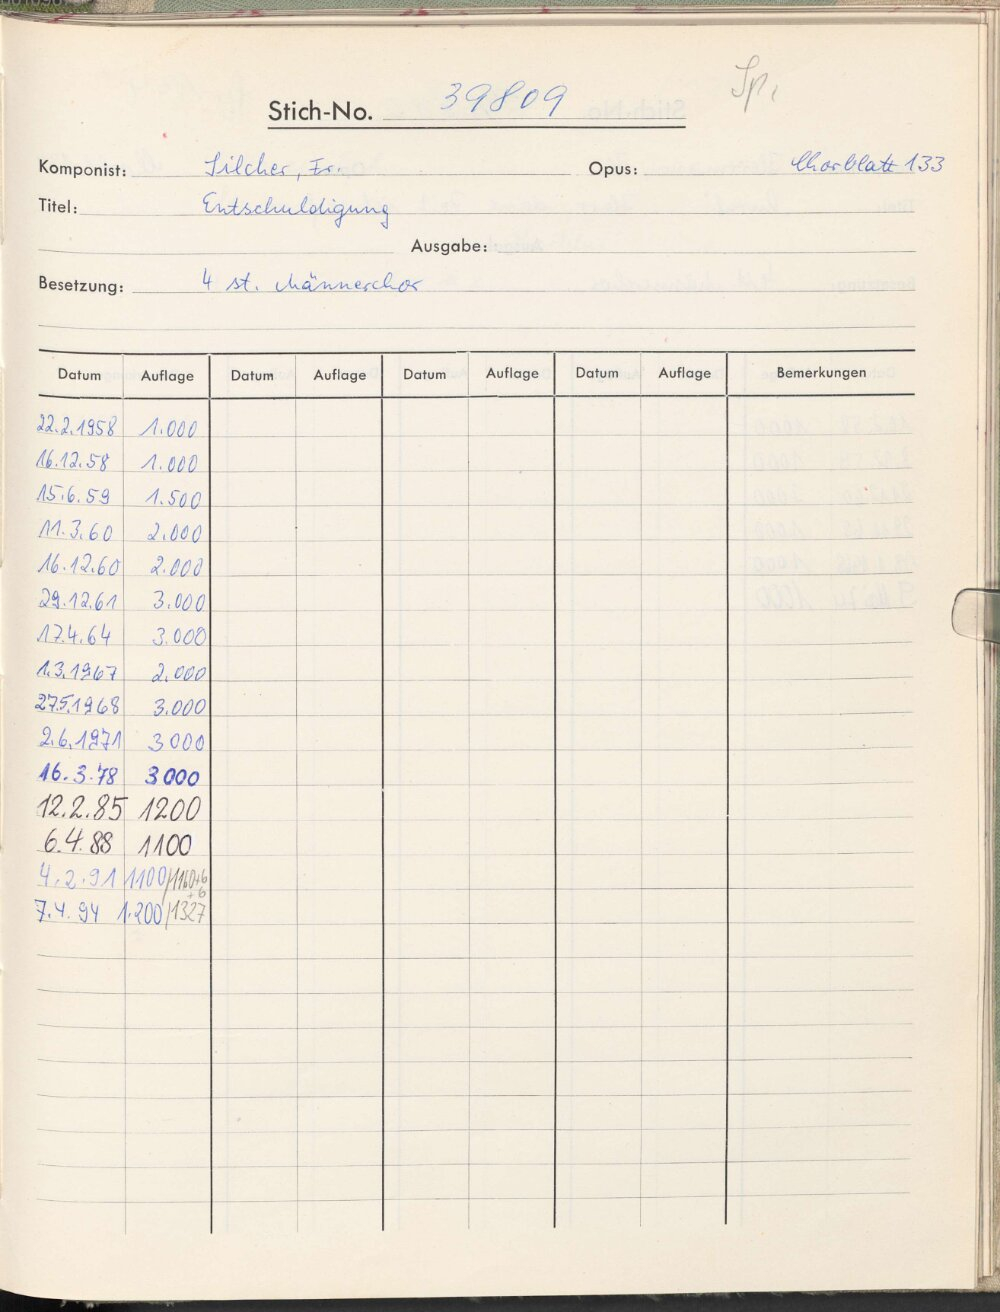 Sp.
Stich-No. 39809
Komponist: Silcher, Fr. Opus: Chorblatt 133
Titel: Entschuldigung
Ausgabe:
Besetzung: 4 st. Männerchor
Datum Auflage Datum Auflage Datum Auflage Datum Auflage Bemerkungen
22.2.1958 1.000
16.12.58 1.000
15.6.59 1.500
11.3.60 2.000
16.12.60 2.000
29.12.61 3.000
17.4.64 3.000
1.3.1967 2.000
27.5.1968 3.000
2.6.1971 3000
16.3.78 3000
12.2.85 1200
6.4.88 1100
4.2.91 1100/1160+6
+6
7.4.94 1.200/1327